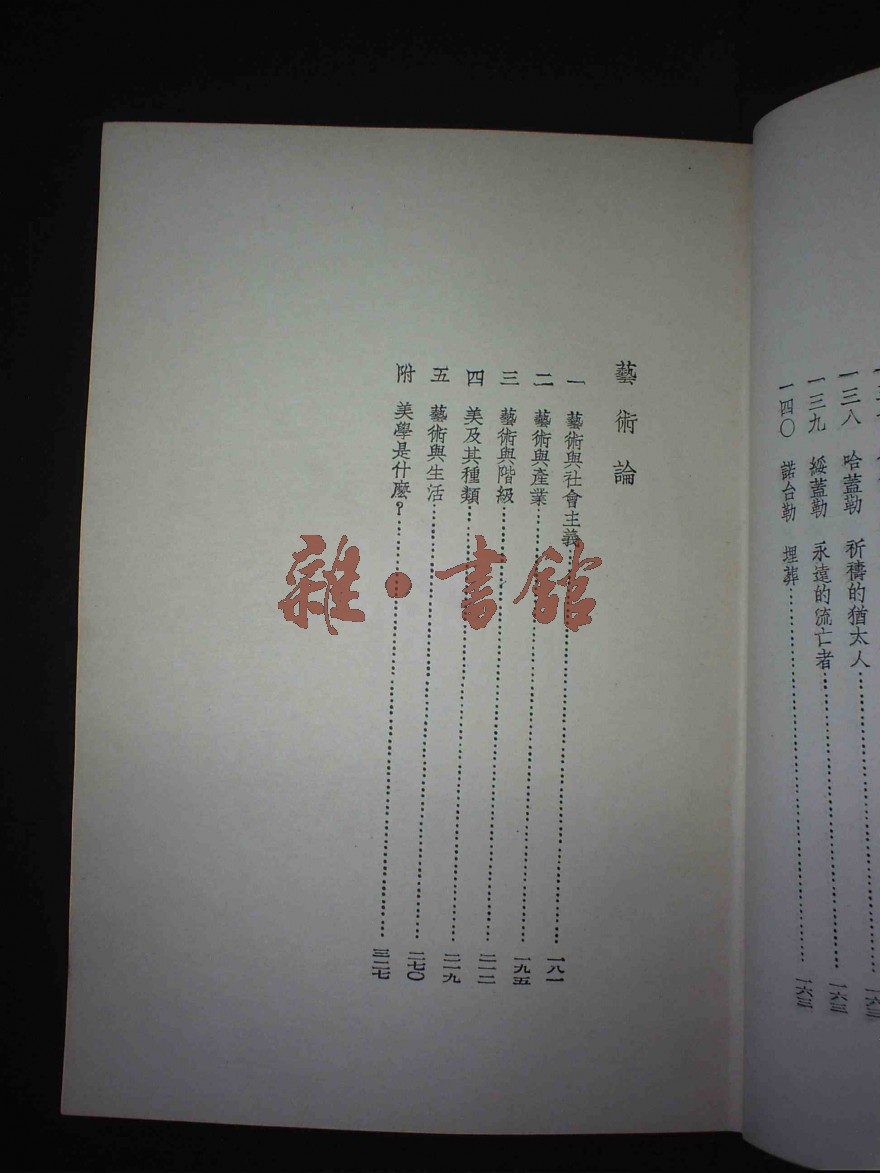 一三八 哈蓋勒 祈禱的猶太人
一三九 綏蓋勒 永遠的流亡者……一六三
一四〇 諾台勒 埋葬……一六三
藝術論
一 藝術與社會主義……一八一
二 藝術與產業……一九五
三 藝術與階級……二一二
四 美及其種類……二一九
五 藝術與生活……二七〇
附 美學是什麼？……三二七
雜·書館